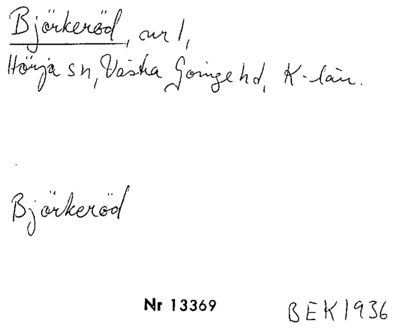 Björkeröd, nr 1,
Hörja sn, Västra Göinge hd, K-län.
Björkeröd
Nr 13369
BEK 1936